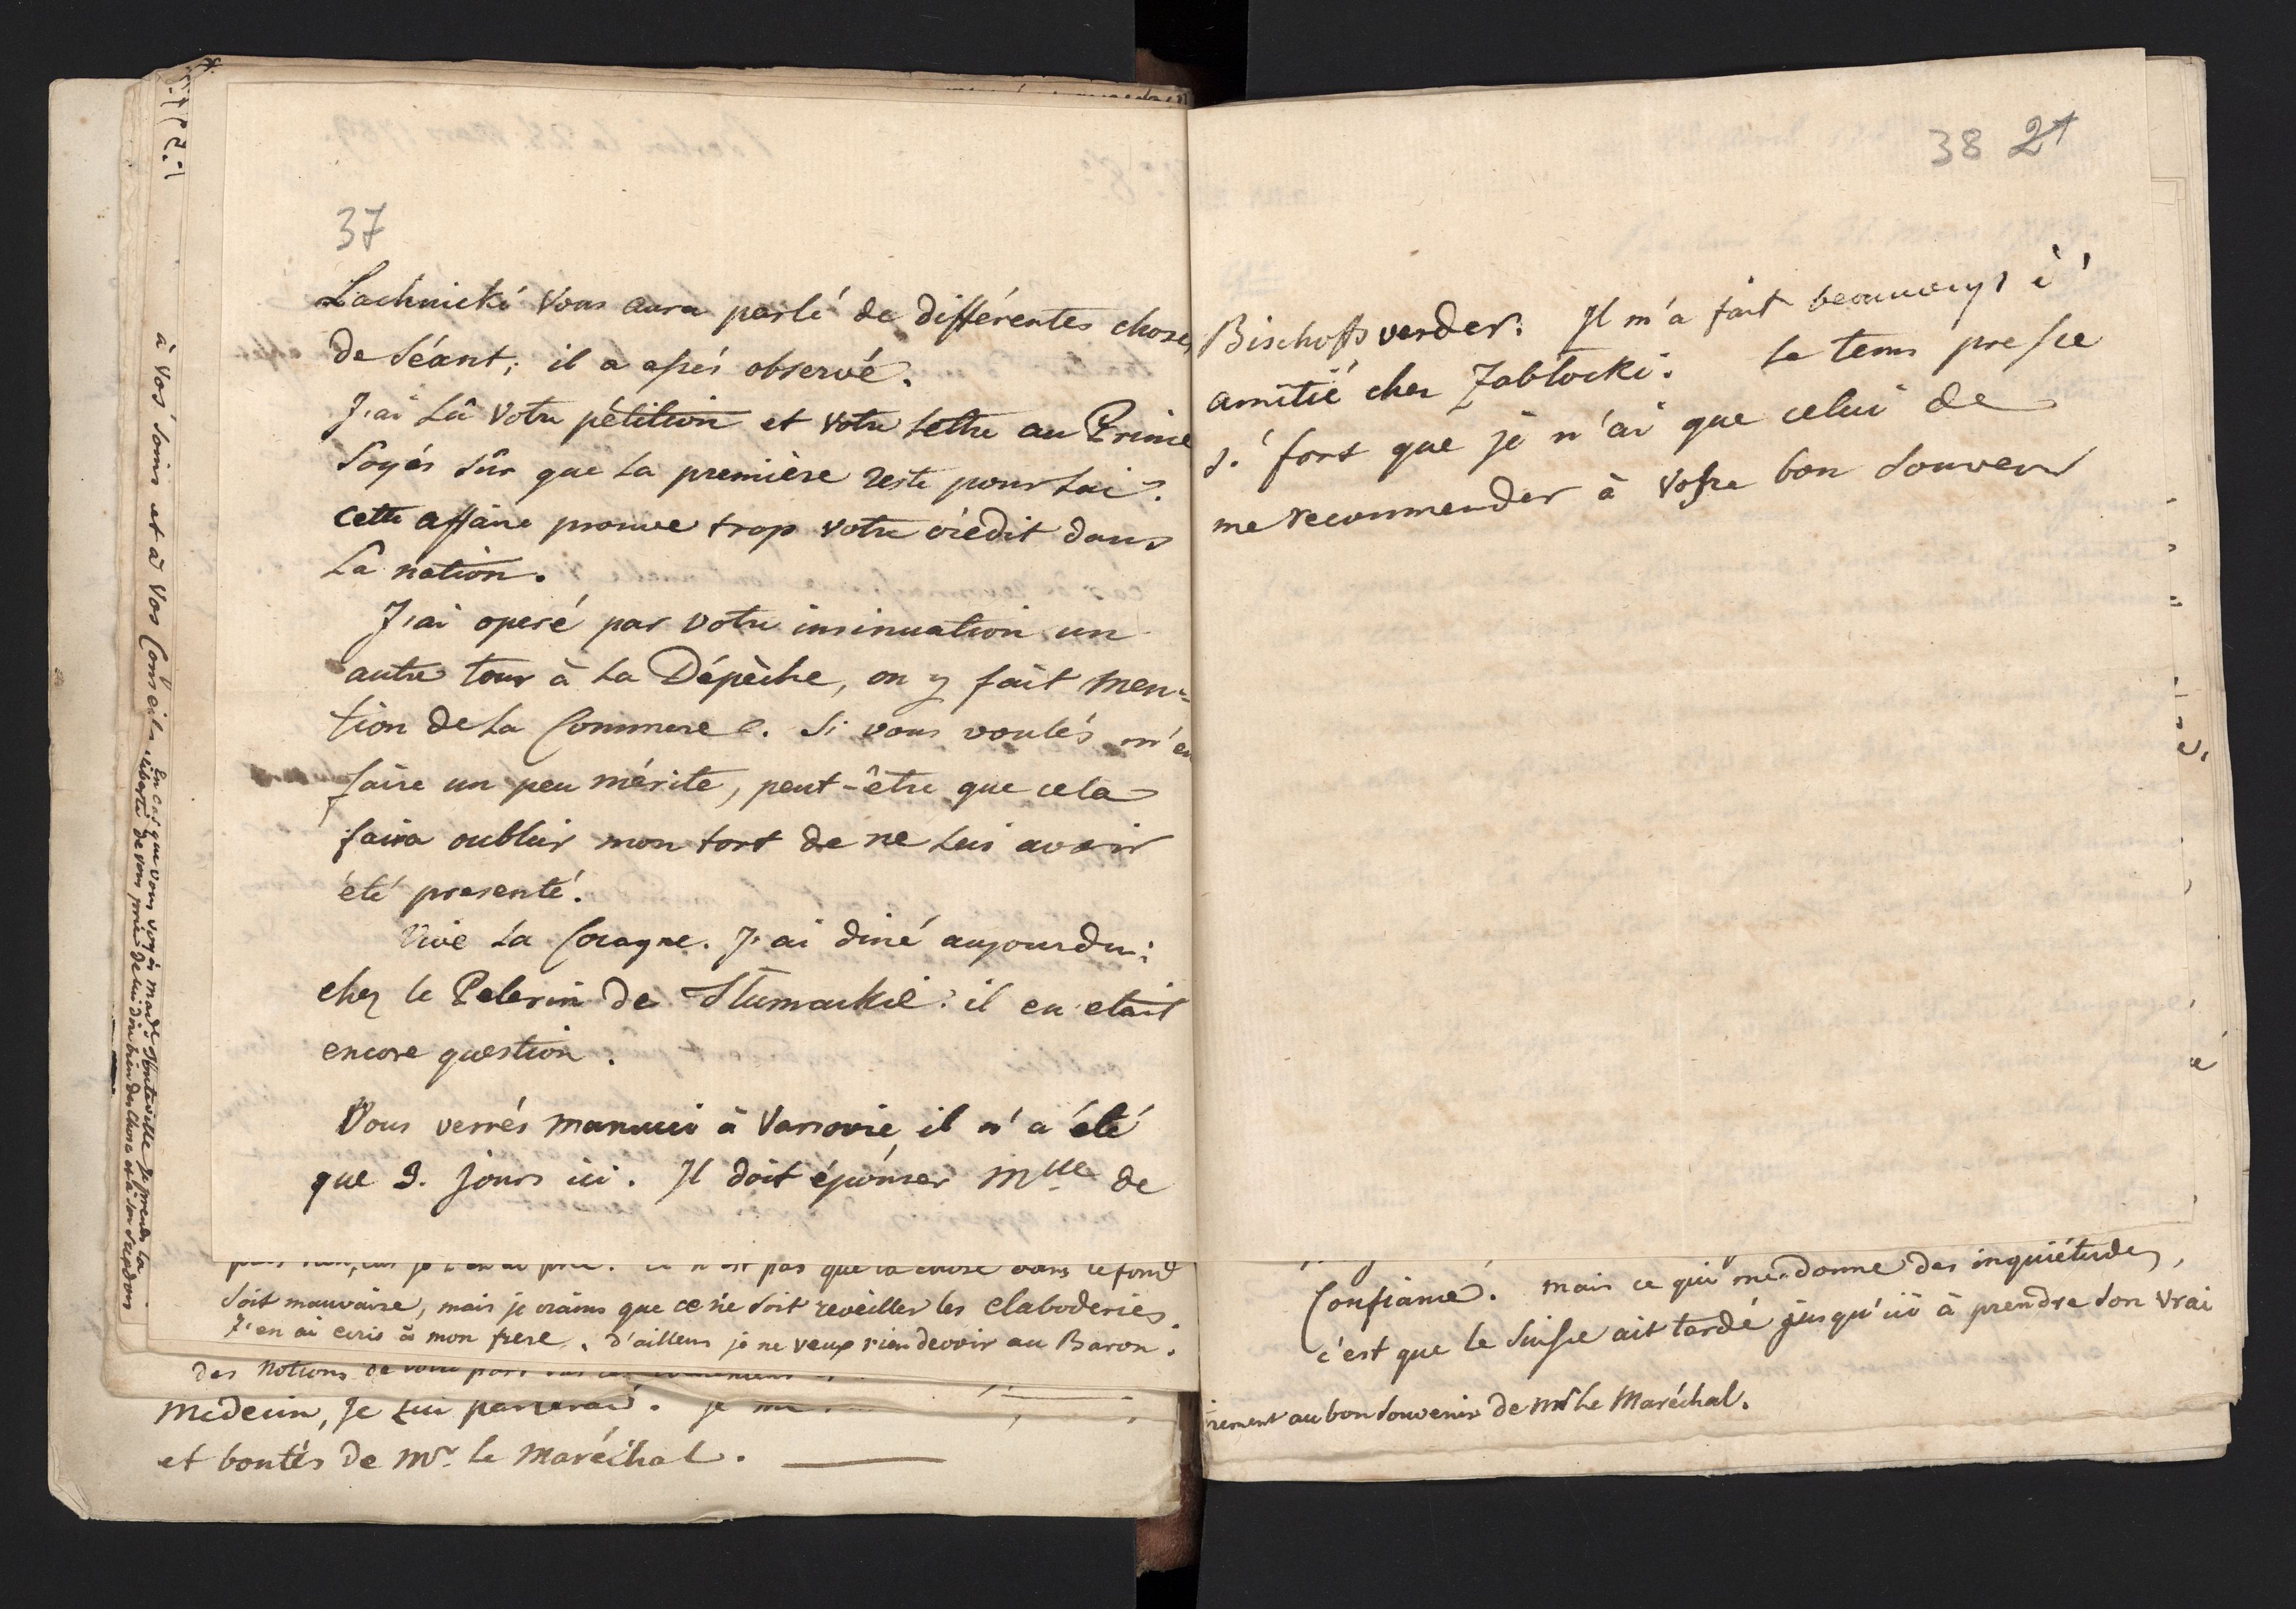 37
Lachnicki vous aura parlé de différentes choses
de séant; il a assés observé.
J'ai lû votre pétition et votre lettre au Prince
Soyés sûr que la première reste pour lui.
cette affaire prouve trop votre crédit dans
la nation.
J'ai operé par votre insinuation un
autre tour à la Dépèche, on y fait men=
tion de la Commerce. Si vous voulés m'en
faire un peu mérite, peut-être que cela
faira oublier mon tort de ne lui avoir
été presenté.
Vive la Cocagne. J'ai diné aujourdui
chez le Pelerin de il en etait
encore question.
Vous verrés manuci à Varsovie il n'a été
que 3. jours ici. Il doit épouser Mlle de
38 21
Bischoffsverder. Il m'a fait beaucoup d'
amitié cher Zabłocki. Le tems presse
si fort que je n'ai que celui de
me recommender à Votre bon souvenir
à vos soins et à vos Conseils.
En cas que vous voyés Made Hauteville je prends la
liberté de vous prier de lui dire bien des choses et à son
soit mauvaise, mais je crains que ce ne soit reveiller les claboderies.
J'en ai ecris à mon frere. d'ailleurs je ne veux rien devoir au Baron.
des notions de votre part
Medecin, je lui parlerai. je me
et bontés de Mr. le Maréchal.
Confiance. mais ce qui me donne des inquiétudes,
c'est que le Suisse ait tardé jusqu'ici à prendre son vrai
rement au bon souvenir de Mr le Maréchal.